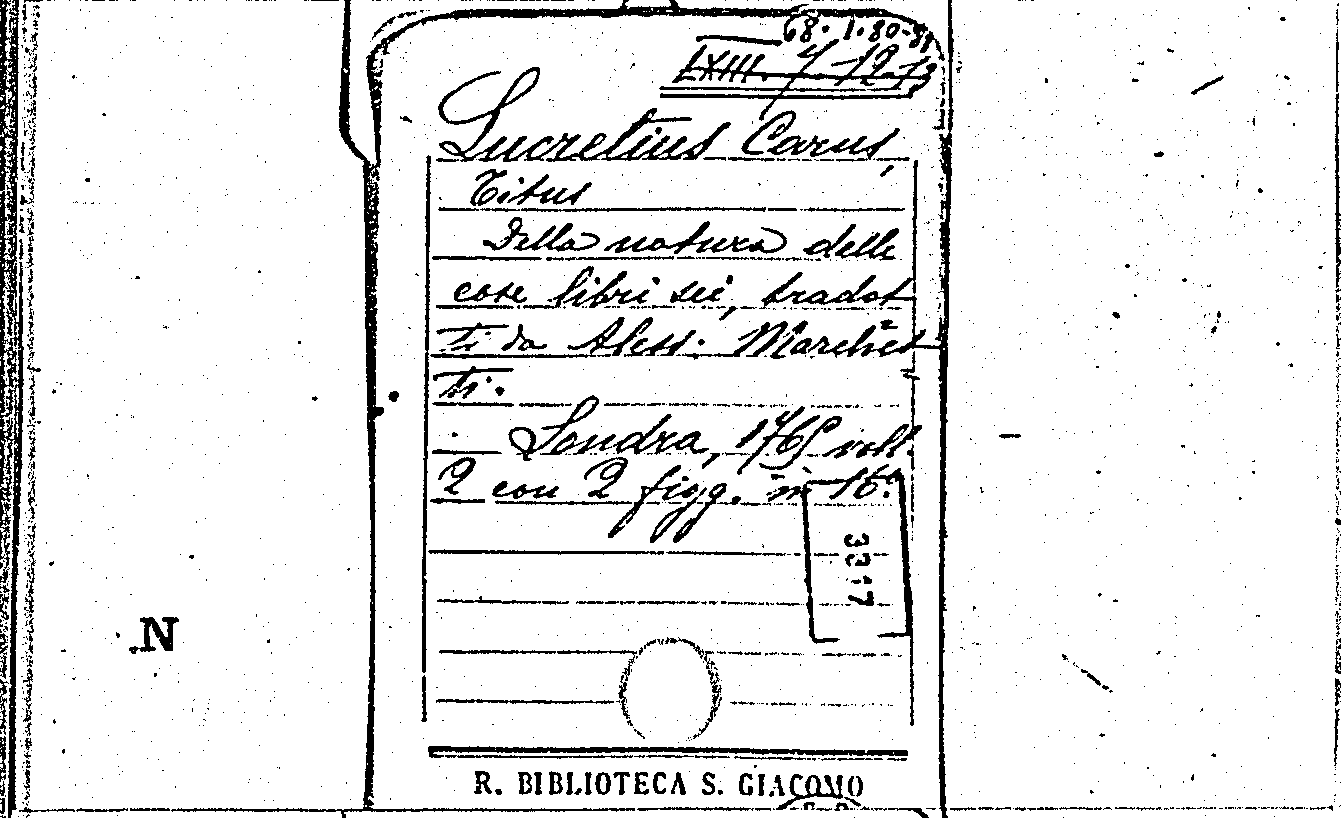 68. 1.80-81
LXIII. 7. 12-13
Lucretius Carus,
Titus
Della natura delle
cose libri sei, tradot
ti da Aless. Marchet
ti.
Londra, 1765 voll.
2 con 2 figg. in 16.°
3317
.N
R. BIBLIOTECA S. GIACOMO